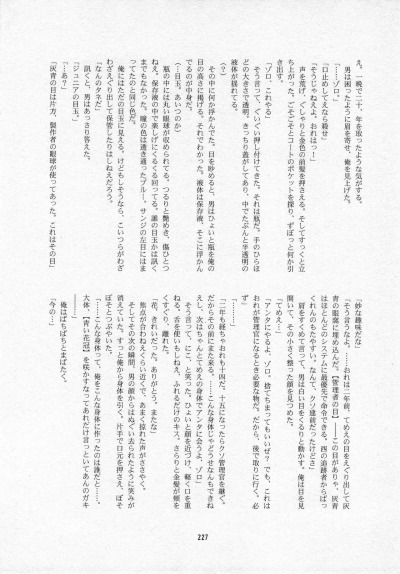 え。一晩で二十、年を取ったような気がする。
男は困ったように眉を寄せ、俺を見上げた。
「……ゾロ」
「口止めして、んなら殺せ」
「そうじゃねえよ、おれはっ！」
声を荒げ、ぐしゃりと金色の前髪を押さえる。そしてすっくと立
ち上がった。ごそごそとコートのポケットを探り、ずぼっと何か引
き出す。
「ゾロ、これやる」
そう言って、ぐいぐい押し付けてきた。それは瓶だ。手のひらほ
どの大きさで透明、きっちり蓋がしてあり、中でたぷんと半透明の
液体が揺れてる。
（？）
その中に何か浮かんでた。目を眇めると、男はひょいと瓶を俺の
目の高さに掲げる。それでわかった。液体は保存液、そこに浮かん
でるのが中身だ。
（……目玉。あいつのか）
瓶の中には丸い眼球が収められてる。つるりと艶めき、傷ひとつ
ねえ。保存液の中で楽しげにくるくる回ってる。誰の目玉かは訊く
までもなかった。瞳の色は透き通ったブルー。サンジの左目にはま
ってたのと同じ色だ。
俺にはただの目玉に見える。けどもしそうなら、こいつらがわざ
わざえぐり出して保管したりはしねえだろう。
「なんのタネだ」
訊くと、男はあっさり答えた。
「ジュニアの目玉」
「……あ？」
「灰青の目は片方、製作者の眼球が使ってあった。これはその目」
「妙な趣味だな」
「そう言うなよ。……おれは二年前、てめえの目をえぐり出して灰
青の眼窩に埋め込んだ。【管理者の目】――この目がありゃ、灰青
はほとんどのシステムに最優先で命令できる。西の追跡者からばっ
くれんのもたやすい。なんで、クソ途前だったけどさ」
肩をすくめて言って、男は白い目をくるりと動かす。俺は目を見
開いて、その小さく整った顔を見つめた。
「てめえ……」
「アンタにやるよ、ゾロ。捨てちまってもいいぜ？ でも、これは
おれが管理官になるとき必要な物だ。だから、後で取りに行く。必
ず」
「……」
「二年も経ちゃおれも十四だ。十五になったらクソ管理官を継ぐ。
だからその前にまた来る。……こんな身体じゃどうせなんもできね
えし、次はちゃんとてめえの身体でアンタに会うよ、ゾロ」
そう言って、にこ、と笑った。ひょいと顔を近づけ、軽く口を重
ねる。舌を使いもしねえ、ふれるだけのキス、さらりと金髪が頬を
くすぐり、離れた。
「花、きれいだった。ありがとう。またな」
焦点が合わねえくらい近くで、あまく掠れた声がささやく。
そしてその次の瞬間、男の顔からはぬぐい去られたように笑みが
消えていた。すっと俺から身体を引く。片手で口元を押さえ、ぼそ
ぼそとつぶやいた。
「……こんな身体って、俺をこんな身体に作ったのは誰だと……。
大体、【青い花冠】を咲かすなってあれだけ言っといてあんのガキ
俺はぱちぱちとまばたく。
「今の……」
227